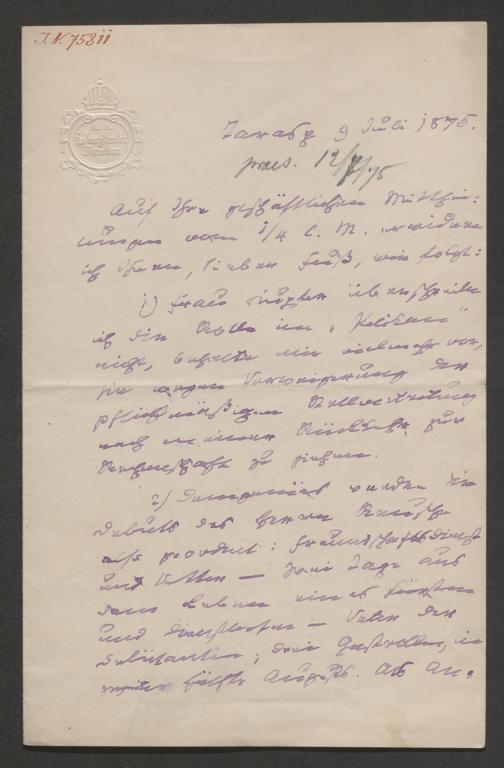 I.N. 75811
Tarasp 9 Juli 1875.
praes. 12/7/75
Auf Ihre geschäftlichen Mitthei-
lungen vom 1/4 l. M. erwidere
ich Ihnen, lieber Fuß, wie folgt:
1) Frau überschreibe
ich die Rolle im „Pelikan"
nicht, behalte mir vielmehr vor,
sie wegen Verweigerung der
pflichtmäßigen Stellvertretung
nach meiner Rückkehr zur
Rechenschaft zu ziehen.
2) werden die
Debuts des Herrn
also geordnet: Freundschaftsdienst
und Vetter — Zwei Tage aus
dem Leben eines Fürsten
und — Vater der
Debütantin; drei Gastrollen, in
Hälfte August. Als An-